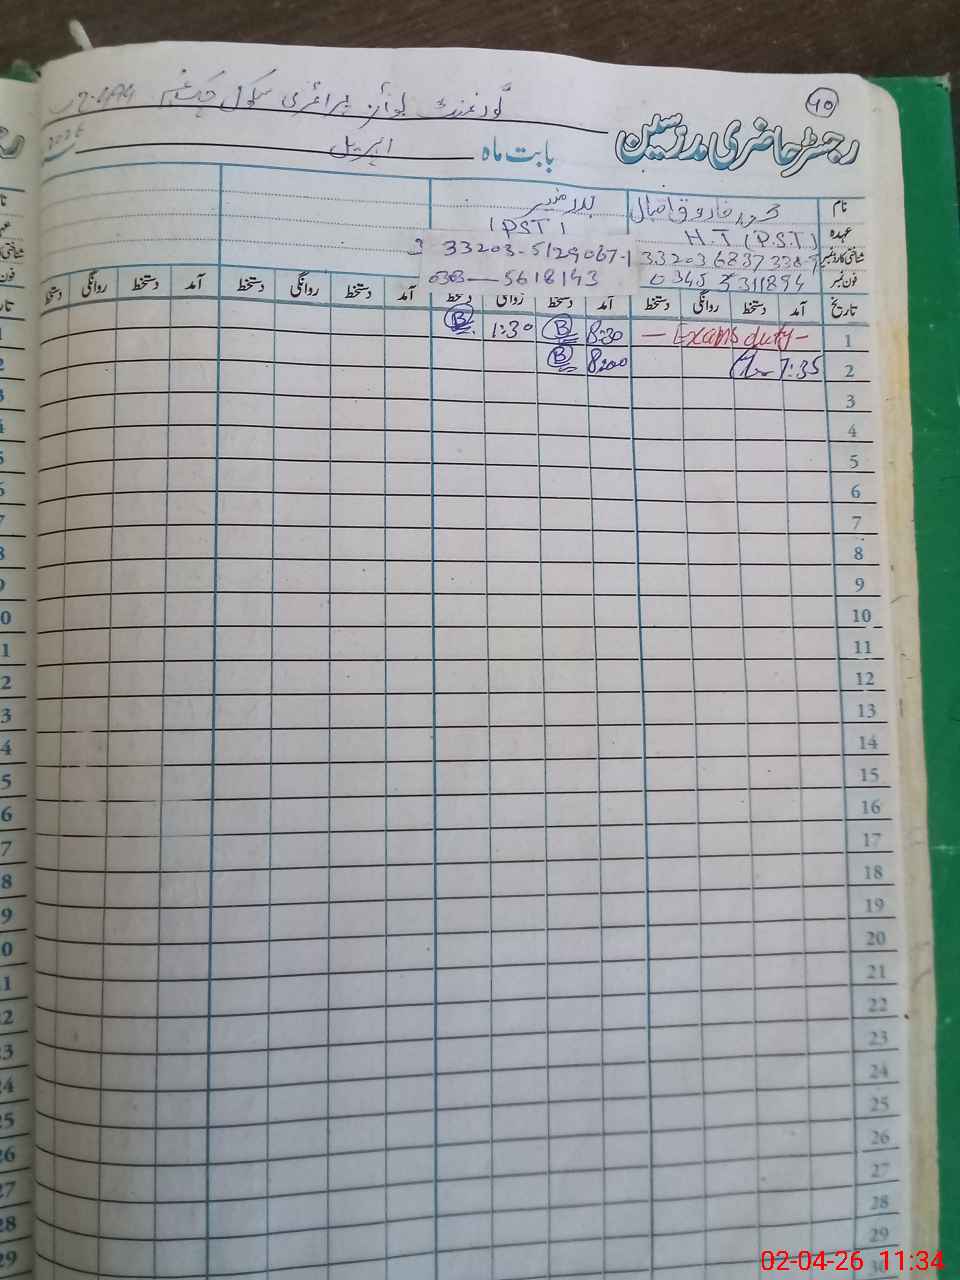 40
گورنمنٹ بوائز پرائمری سکول چک نمبر
رجسٹر حاضری مدرسین
بابت ماہ اپریل 2026
نام محمد فاروق اقبال بدر منیر
عہدہ H.T (P.S.T) (PST)
شناختی کارڈ نمبر 33203-5129067-1
فون نمبر 0345 7311894 0303-5618143
تاریخ آمد دستخط روانگی دستخط آمد دستخط روانگی دستخط آمد دستخط روانگی دستخط آمد دستخط روانگی دستخط
1 — Exams duty — 8:30 B 1:30 B
2 7:35 8:00 B
3
4
5
6
7
8
9
10
11
12
13
14
15
16
17
18
19
20
21
22
23
24
25
26
27
28
29
30
02-04-26 11:34